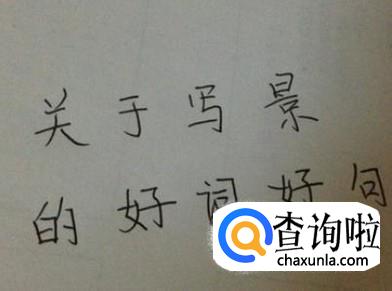 关于写景
的好词好句
查询啦
chaxunla.com